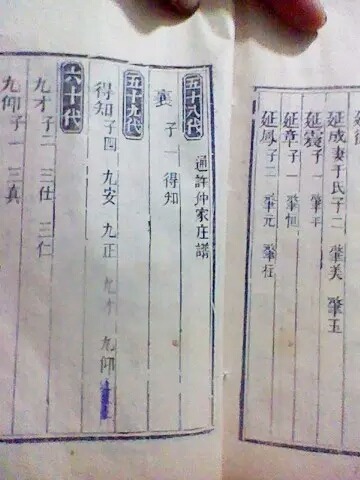 延
延成妻于氏子二 肇美 肇玉
延震子一 肇平
延章子一 肇恒
延鳳子二 肇元 肇柱
五十八代 通許仲家庄譜
襄 子一 得知
五十九代
得知子四 九安 九正 九才 九仰
六十代
九才子二 三仕 三仁
九仰子一 三真